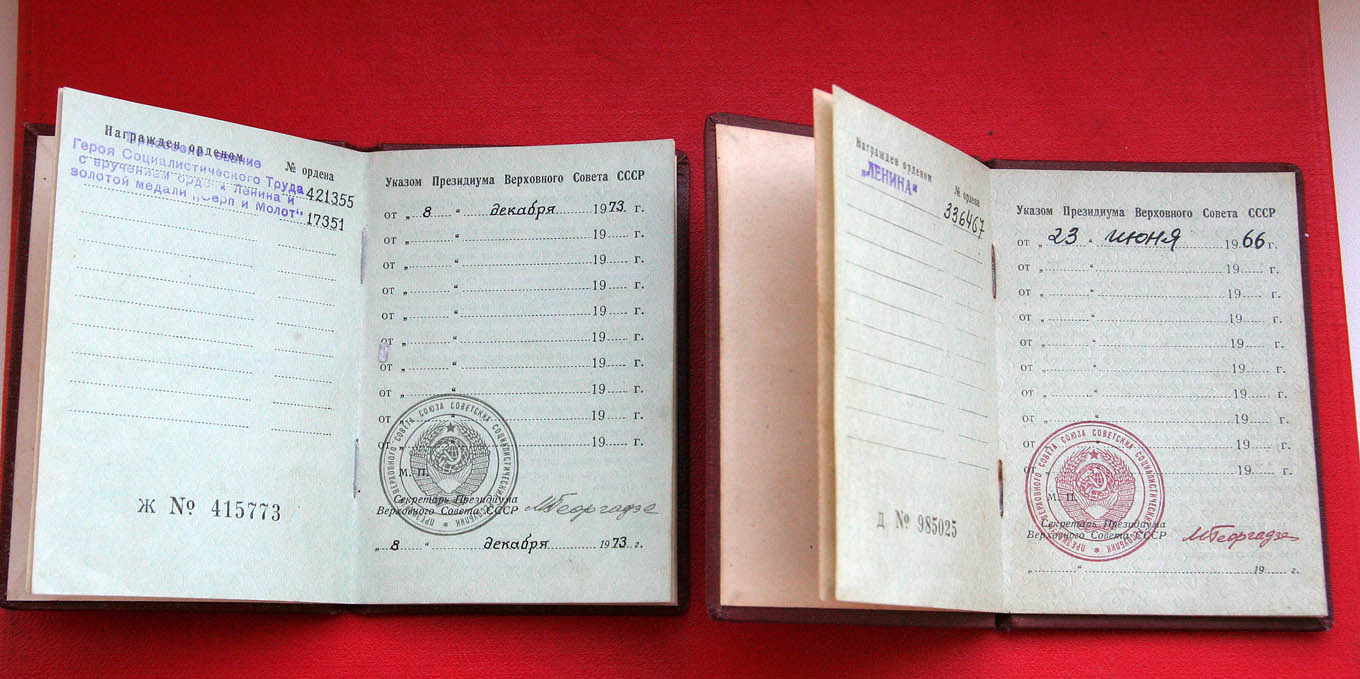 Награжден орденом
№ ордена
Присвоено звание
Героя Социалистического Труда
с вручением ордена Ленина и 421355
золотой медали „Серп и Молот" 17351
Ж № 415773
Указом Президиума Верховного Совета СССР
от „ 8 " декабря 1973 г.
от „ " 19 г.
от „ " 19 г.
от „ " 19 г.
от „ " 19 г.
от „ " 19 г.
от „ " 19 г.
от „ " 19 г.
от „ " 19 г.
от „ " 19 г.
ПРЕЗИДИУМ ВЕРХОВНОГО СОВЕТА СОЮЗА СОВЕТСКИХ СОЦИАЛИСТИЧЕСКИХ РЕСПУБЛИК
М. П.
Секретарь Президиума
Верховного Совета СССР МГеоргадзе
„ 8 " декабря 1973 г.
Награжден орденом
№ ордена
„ЛЕНИНА" 336467
Д № 985025
Указом Президиума Верховного Совета СССР
от „ 23 " июня 1966 г.
от „ " 19 г.
от „ " 19 г.
от „ " 19 г.
от „ " 19 г.
от „ " 19 г.
от „ " 19 г.
от „ " 19 г.
от „ " 19 г.
от „ " 19 г.
ПРЕЗИДИУМ ВЕРХОВНОГО СОВЕТА СОЮЗА СОВЕТСКИХ СОЦИАЛИСТИЧЕСКИХ РЕСПУБЛИК
М. П.
Секретарь Президиума
Верховного Совета СССР МГеоргадзе
„ " 19 г.